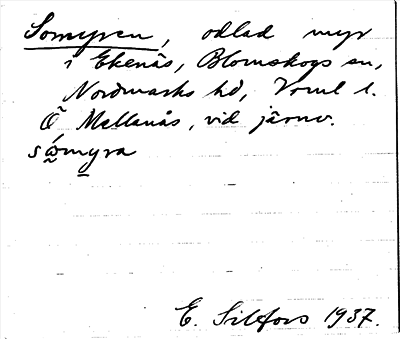 Somyren, odlad myr
i Ekenäs, Blomskogs sn,
Nordmarks hd, Vrml l.
Ö Mellanås, vid järnv.
sὼmyra
E. Silfors 1937.